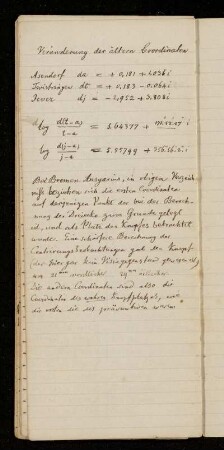 Veränderung der ältern Coordinaten
Asendorf da = + 0,181 + 1.036 i
Twistringen dt = + 0.183 - 0.064 i
Jever dj = - 1,952 + 3.808 i
log d(t-a) / t-a = 5.64377 +
log d(j-a) / j-a = 5.57749 +
Bei Bremen Ansgarius, in obigen Verzeich-
nisse beziehen sich die ersten Coordinaten
auf denjenigen Punkt der bei der Berech-
nung der Dreiecke zum Grunde gelegt
ist, und als Platz des Knopfes betrachtet
wurde. Eine schärfere Berechnung der
Centrirungsbeobachtungen gab den Knopf
(der hier gar kein Visirgegenstand gewesen ist)
um westlicher östlicher.
Die andern Coordinaten sind also die
Coordinaten des wahren Knopfplatzes, wie
die ersten die des präsumtiven waren